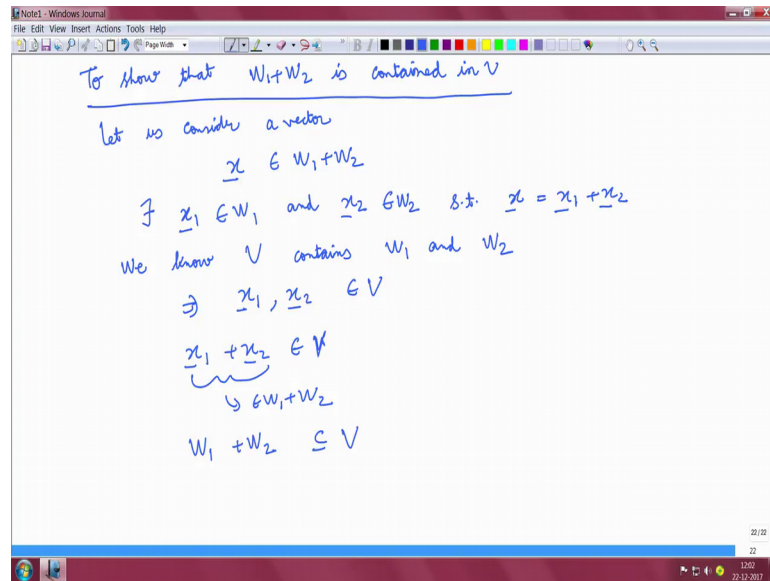 Note1 - Windows Journal
File Edit View Insert Actions Tools Help
Page Width
To show that W₁+W₂ is contained in V
Let us consider a vector
x ∈ W₁+W₂
∃ x₁ ∈ W₁ and x₂ ∈ W₂ s.t. x = x₁ + x₂
We know V contains W₁ and W₂
⇒ x₁, x₂ ∈ V
x₁ + x₂ ∈ V
↳ ∈ W₁+W₂
W₁ + W₂ ⊆ V
22/22
22
12:02
22-12-2017